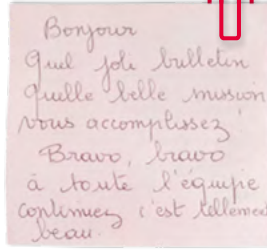 Bonjour
Quel joli bulletin
Quelle belle mission
vous accomplissez !
Bravo, bravo
à toute l'équipe
continuez c'est tellement
beau.